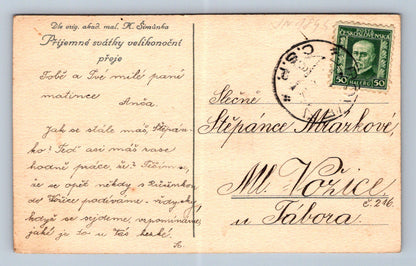 Dle orig. akad. mal. K. Šimůnka
Příjemné svátky velikonoční
přeje
Tobě a Tvé milé paní
matince
Anča.
Jak se stále máš, Štěpán-
ko? Teď asi máš zase
hodně práce, že? Těšíme,
že se opět někdy s
do Vožice podíváme - vždycky
když se sejdeme, vzpomínáme
jaké je to u Vás hezké.
A.
ČESKOSLOVENSKÁ
50 HALÉŘŮ 50
Č.S.P.
Slečně
Štěpánce Mrázkové,
Ml. Vožice
č. 216.
u Tábora.